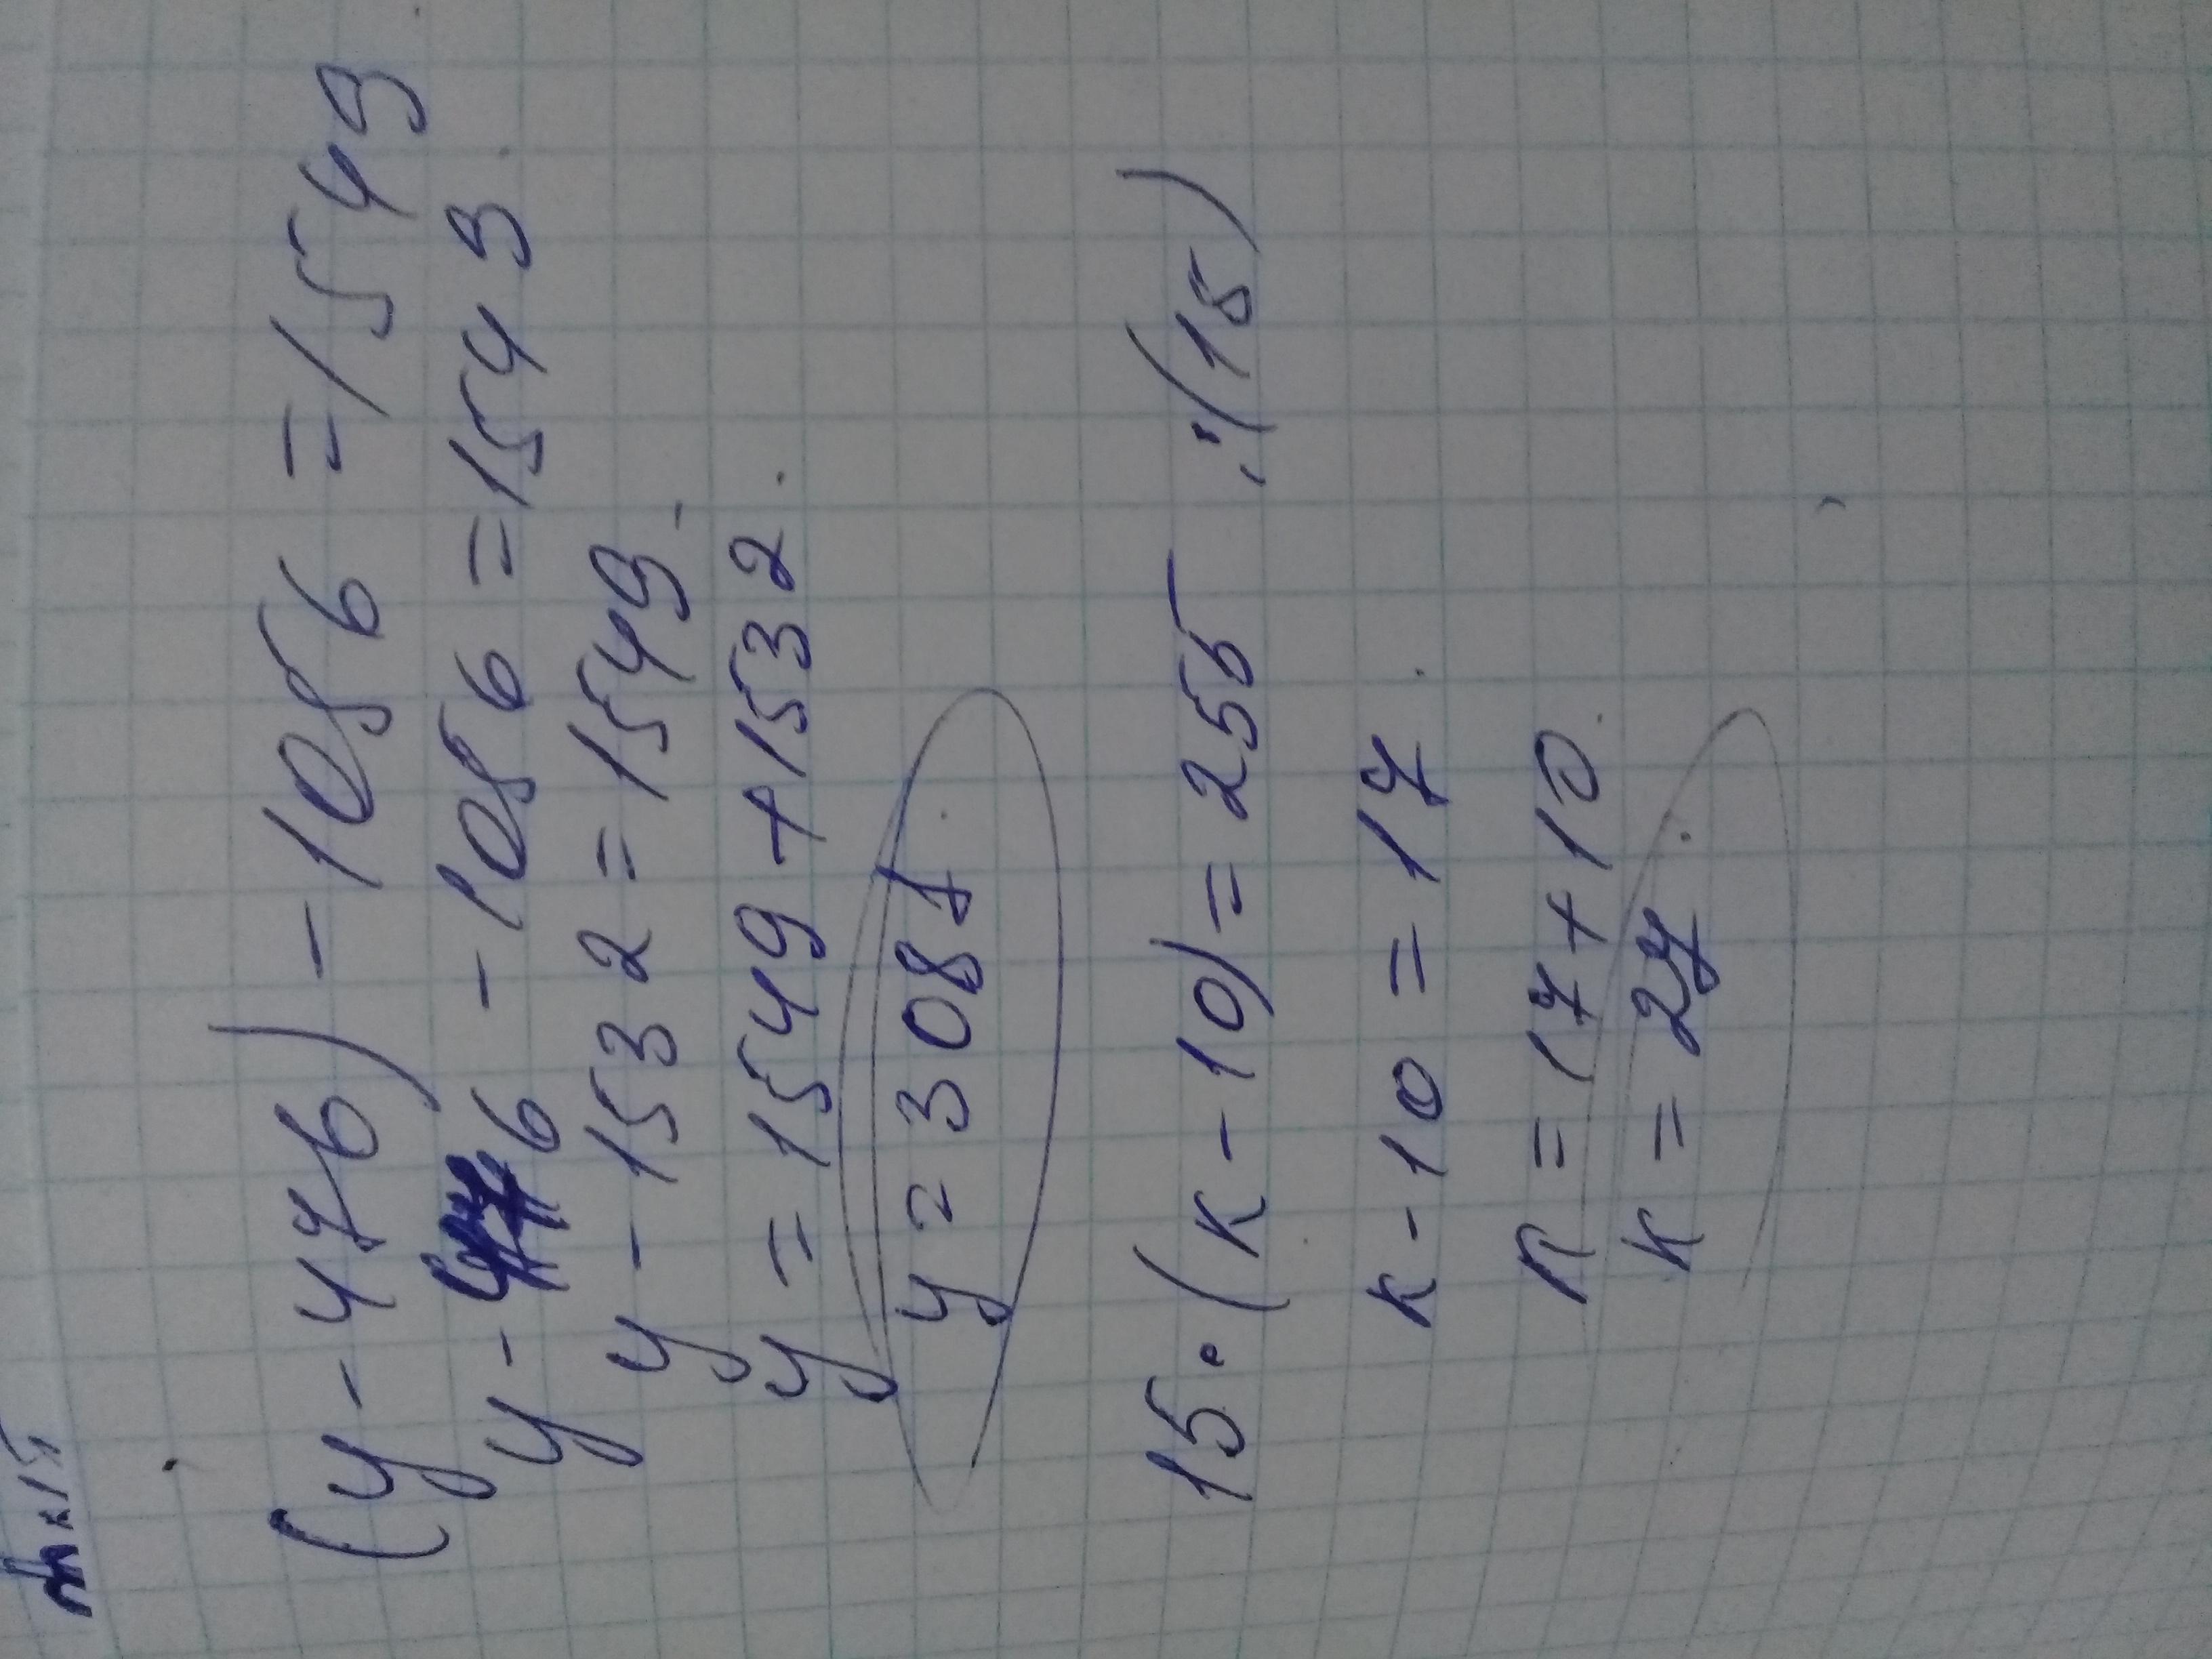 (y - 476) - 1086 = 1549
y - 476 - 1086 = 1549
y - 1532 = 1549
y = 1549 + 1532
y = 3081
15 · (к - 10) = 255 :(15)
к - 10 = 17
к = 17 + 10
к = 27